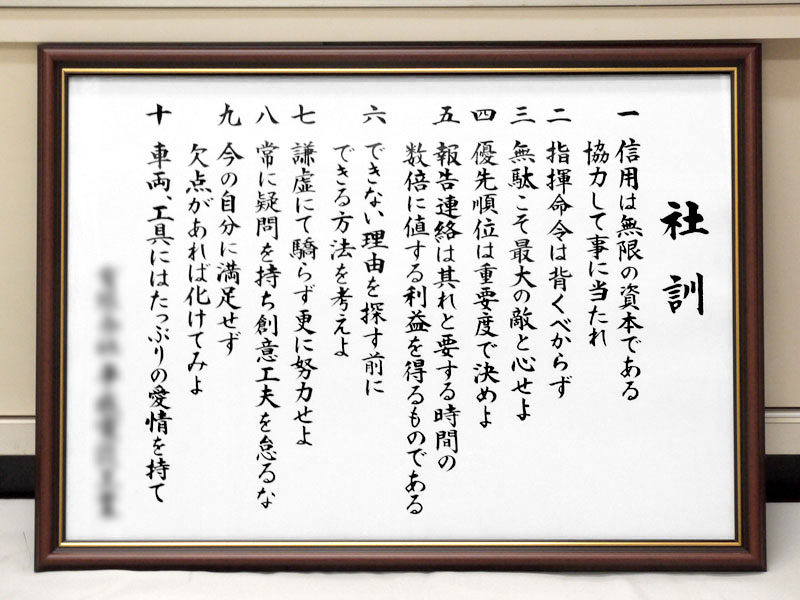 社訓
一 信用は無限の資本である
協力して事に当たれ
二 指揮命令は背くべからず
三 無駄こそ最大の敵と心せよ
四 優先順位は重要度で決めよ
五 報告連絡は其れと要する時間の
数倍に値する利益を得るものである
六 できない理由を探す前に
できる方法を考えよ
七 謙虚にて驕らず更に努力せよ
八 常に疑問を持ち創意工夫を怠るな
九 今の自分に満足せず
欠点があれば化けてみよ
十 車両、工具にはたっぷりの愛情を持て